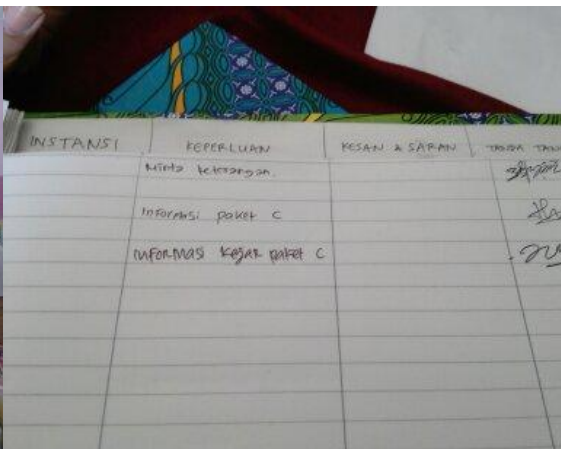 INSTANSI KEPERLUAN KESAN & SARAN TANDA TANG
Minta keterangan.
Informasi paket C
Informasi kejar paket C